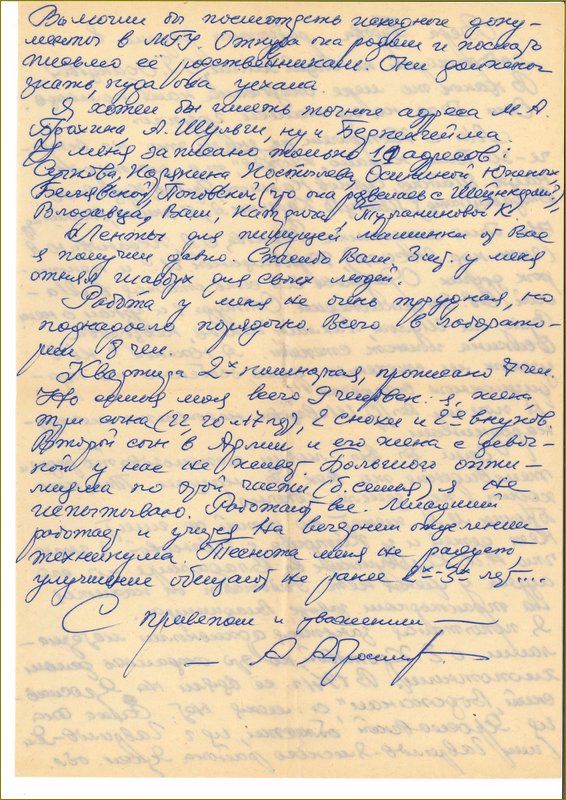 Вы могли бы посмотреть исходные доку-
менты в МГУ Откуда она родом и послать
письмо её родственникам. Они должны
знать, куда она уехала.
Я хотел бы иметь точные адреса М. А.
А. Шульги, ну и
У меня записано только 11 адресов:
Сучкова, Карякина Костылева, Осипиной, Юхаковых
Белявской, Поповской (что она развелась с
Власовца, Ваш, К.
Ленты для пишущей машинки от Вас
я получил давно. Спасибо Вам, Зит. у меня
отнял главбух для своих людей.
Работа у меня не очень трудная, но
поднадоело порядочно Всего в лаборато-
рии 8 чел.
Квартира 2х комнатная, прописано 7 чел.
Но семья моя всего 9 человек: я, жена,
три сына (22, 20 и 17 год), 2 снохи и 2е внуков
Второй сын в Армии и его жена с девоч-
кой у нас не живёт. Большого опти-
мизма по этой части (б. семья) я не
испытываю. Работают все. Младший
работает и учится на вечернем отделении
техникума. Теснота меня не радует,
улучшение обещают не ранее 2х-3х лет....
С приветом и уважением —